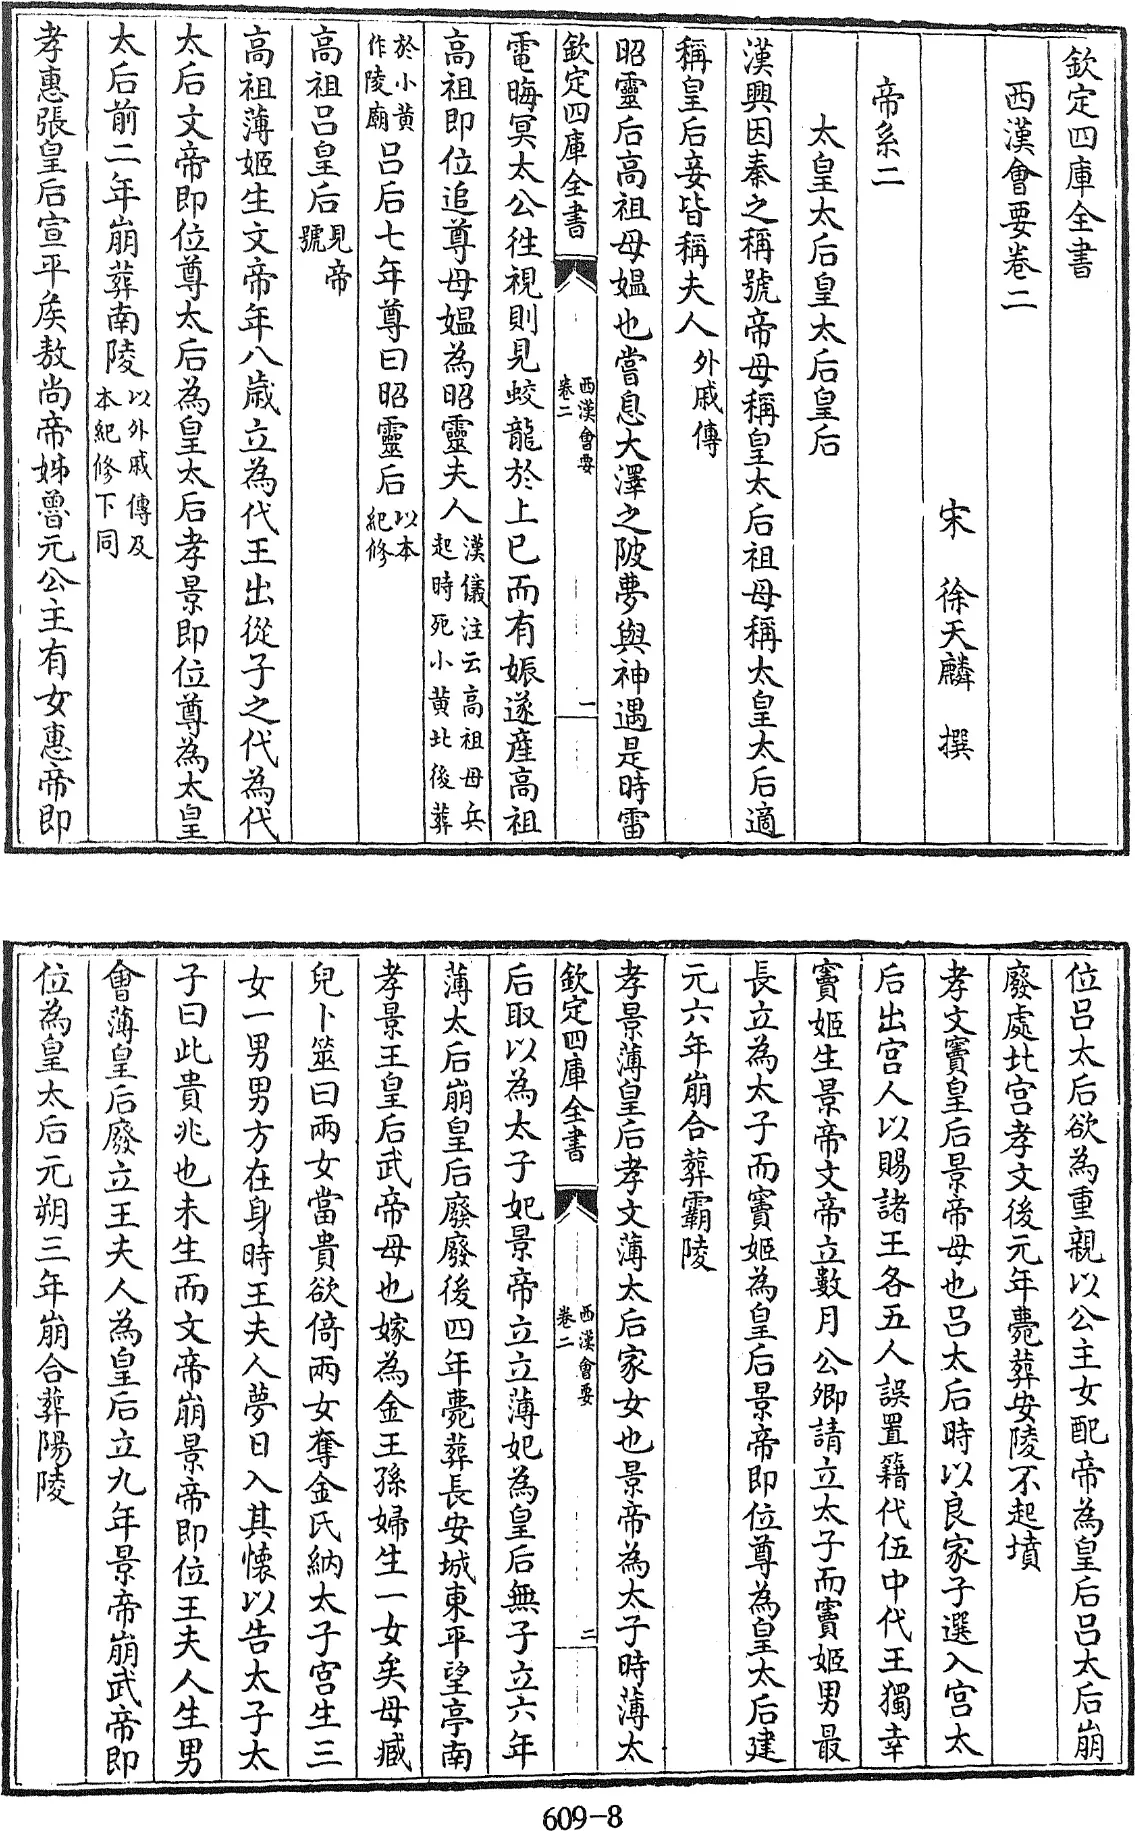 欽定四庫全書
西漢會要卷二
宋 徐天麟 撰
帝系二
太皇太后皇太后皇后
漢興因秦之稱號帝母稱皇太后祖母稱太皇太后適
稱皇后妾皆稱夫人外戚傳
昭靈后高祖母媼也嘗息大澤之陂夢與神遇是時雷
欽定四庫全書
西漢會要
卷二
一
電晦冥太公往視則見蛟龍於上已而有娠遂產高祖
高祖即位追尊母媼為昭靈夫人漢儀注云高祖母兵
起時死小黃北後葬
於小黃
作陵廟呂后七年尊曰昭靈后以本
紀修
高祖呂皇后見帝
號
高祖薄姬生文帝年八歲立為代王出從子之代為代
太后文帝即位尊太后為皇太后孝景即位尊為太皇
太后前二年崩葬南陵以外戚傳及
本紀修下同
孝惠張皇后宣平侯敖尚帝姊魯元公主有女惠帝即
位呂太后欲為重親以公主女配帝為皇后呂太后崩
廢處北宮孝文後元年薨葬安陵不起墳
孝文竇皇后景帝母也呂太后時以良家子選入宮太
后出宮人以賜諸王各五人誤置籍代伍中代王獨幸
竇姬生景帝文帝立數月公卿請立太子而竇姬男最
長立為太子而竇姬為皇后景帝即位尊為皇太后建
元六年崩合葬霸陵
孝景薄皇后孝文薄太后家女也景帝為太子時薄太
欽定四庫全書
西漢會要
卷二
二
后取以為太子妃景帝立立薄妃為皇后無子立六年
薄太后崩皇后廢廢後四年薨葬長安城東平望亭南
孝景王皇后武帝母也嫁為金王孫婦生一女矣母臧
兒卜筮曰兩女當貴欲倚兩女奪金氏納太子宮生三
女一男男方在身時王夫人夢日入其懷以告太子太
子曰此貴兆也未生而文帝崩景帝即位王夫人生男
會薄皇后廢立王夫人為皇后立九年景帝崩武帝即
位為皇太后元朔三年崩合葬陽陵
609-8